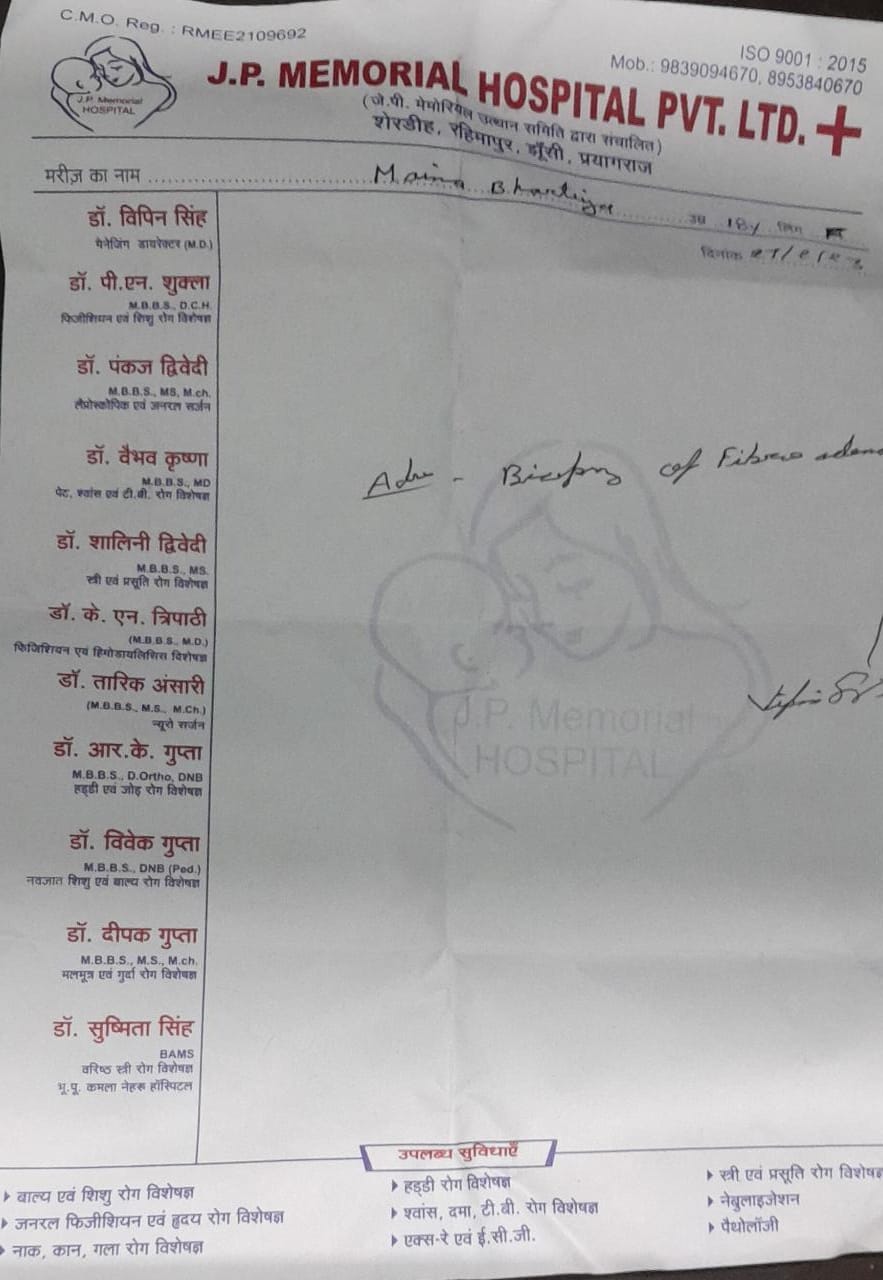 C.M.O. Reg. : RMEE2109692
ISO 9001 : 2015
Mob.: 9839094670, 8953840670
J.P. Memorial
HOSPITAL
J.P. MEMORIAL HOSPITAL PVT. LTD.
(जे.पी. मेमोरियल उत्थान समिति द्वारा संचालित)
शेरडीह, रहिमापुर, झूँसी, प्रयागराज
मरीज़ का नाम
उम्र 18y लिंग F
दिनांक
डॉ. विपिन सिंह
मैनेजिंग डायरेक्टर (M.D.)
डॉ. पी.एन. शुक्ला
M.B.B.S., D.C.H.
फिजीशियन एवं शिशु रोग विशेषज्ञ
डॉ. पंकज द्विवेदी
M.B.B.S., MS, M.ch.
लैप्रोस्कोपिक एवं जनरल सर्जन
डॉ. वैभव कृष्णा
M.B.B.S., MD
पेट, श्वांस एवं टी.बी. रोग विशेषज्ञ
डॉ. शालिनी द्विवेदी
M.B.B.S., MS.
स्त्री एवं प्रसूति रोग विशेषज्ञ
डॉ. के. एन. त्रिपाठी
(M.B.B.S., M.D.)
फिजिशियन एवं हिमोडायलिसिस विशेषज्ञ
डॉ. तारिक अंसारी
(M.B.B.S., M.S., M.Ch.)
न्यूरो सर्जन
डॉ. आर.के. गुप्ता
M.B.B.S., D.Ortho, DNB
हड्डी एवं जोड़ रोग विशेषज्ञ
डॉ. विवेक गुप्ता
M.B.B.S., DNB (Ped.)
नवजात शिशु एवं बाल्य रोग विशेषज्ञ
डॉ. दीपक गुप्ता
M.B.B.S., M.S., M.ch.
मलमूत्र एवं गुर्दा रोग विशेषज्ञ
डॉ. सुष्मिता सिंह
BAMS
वरिष्ठ स्त्री रोग विशेषज्ञ
भू.पू. कमला नेहरू हॉस्पिटल
Adv - Biopsy of Fibro adeno
J.P. Memorial
HOSPITAL
उपलब्ध सुविधाएँ
बाल्य एवं शिशु रोग विशेषज्ञ
जनरल फिजीशियन एवं हृदय रोग विशेषज्ञ
नाक, कान, गला रोग विशेषज्ञ
हड्डी रोग विशेषज्ञ
श्वांस, दमा, टी.बी. रोग विशेषज्ञ
एक्स-रे एवं ई.सी.जी.
स्त्री एवं प्रसूति रोग विशेषज्ञ
नेबुलाइजेशन
पैथोलॉजी